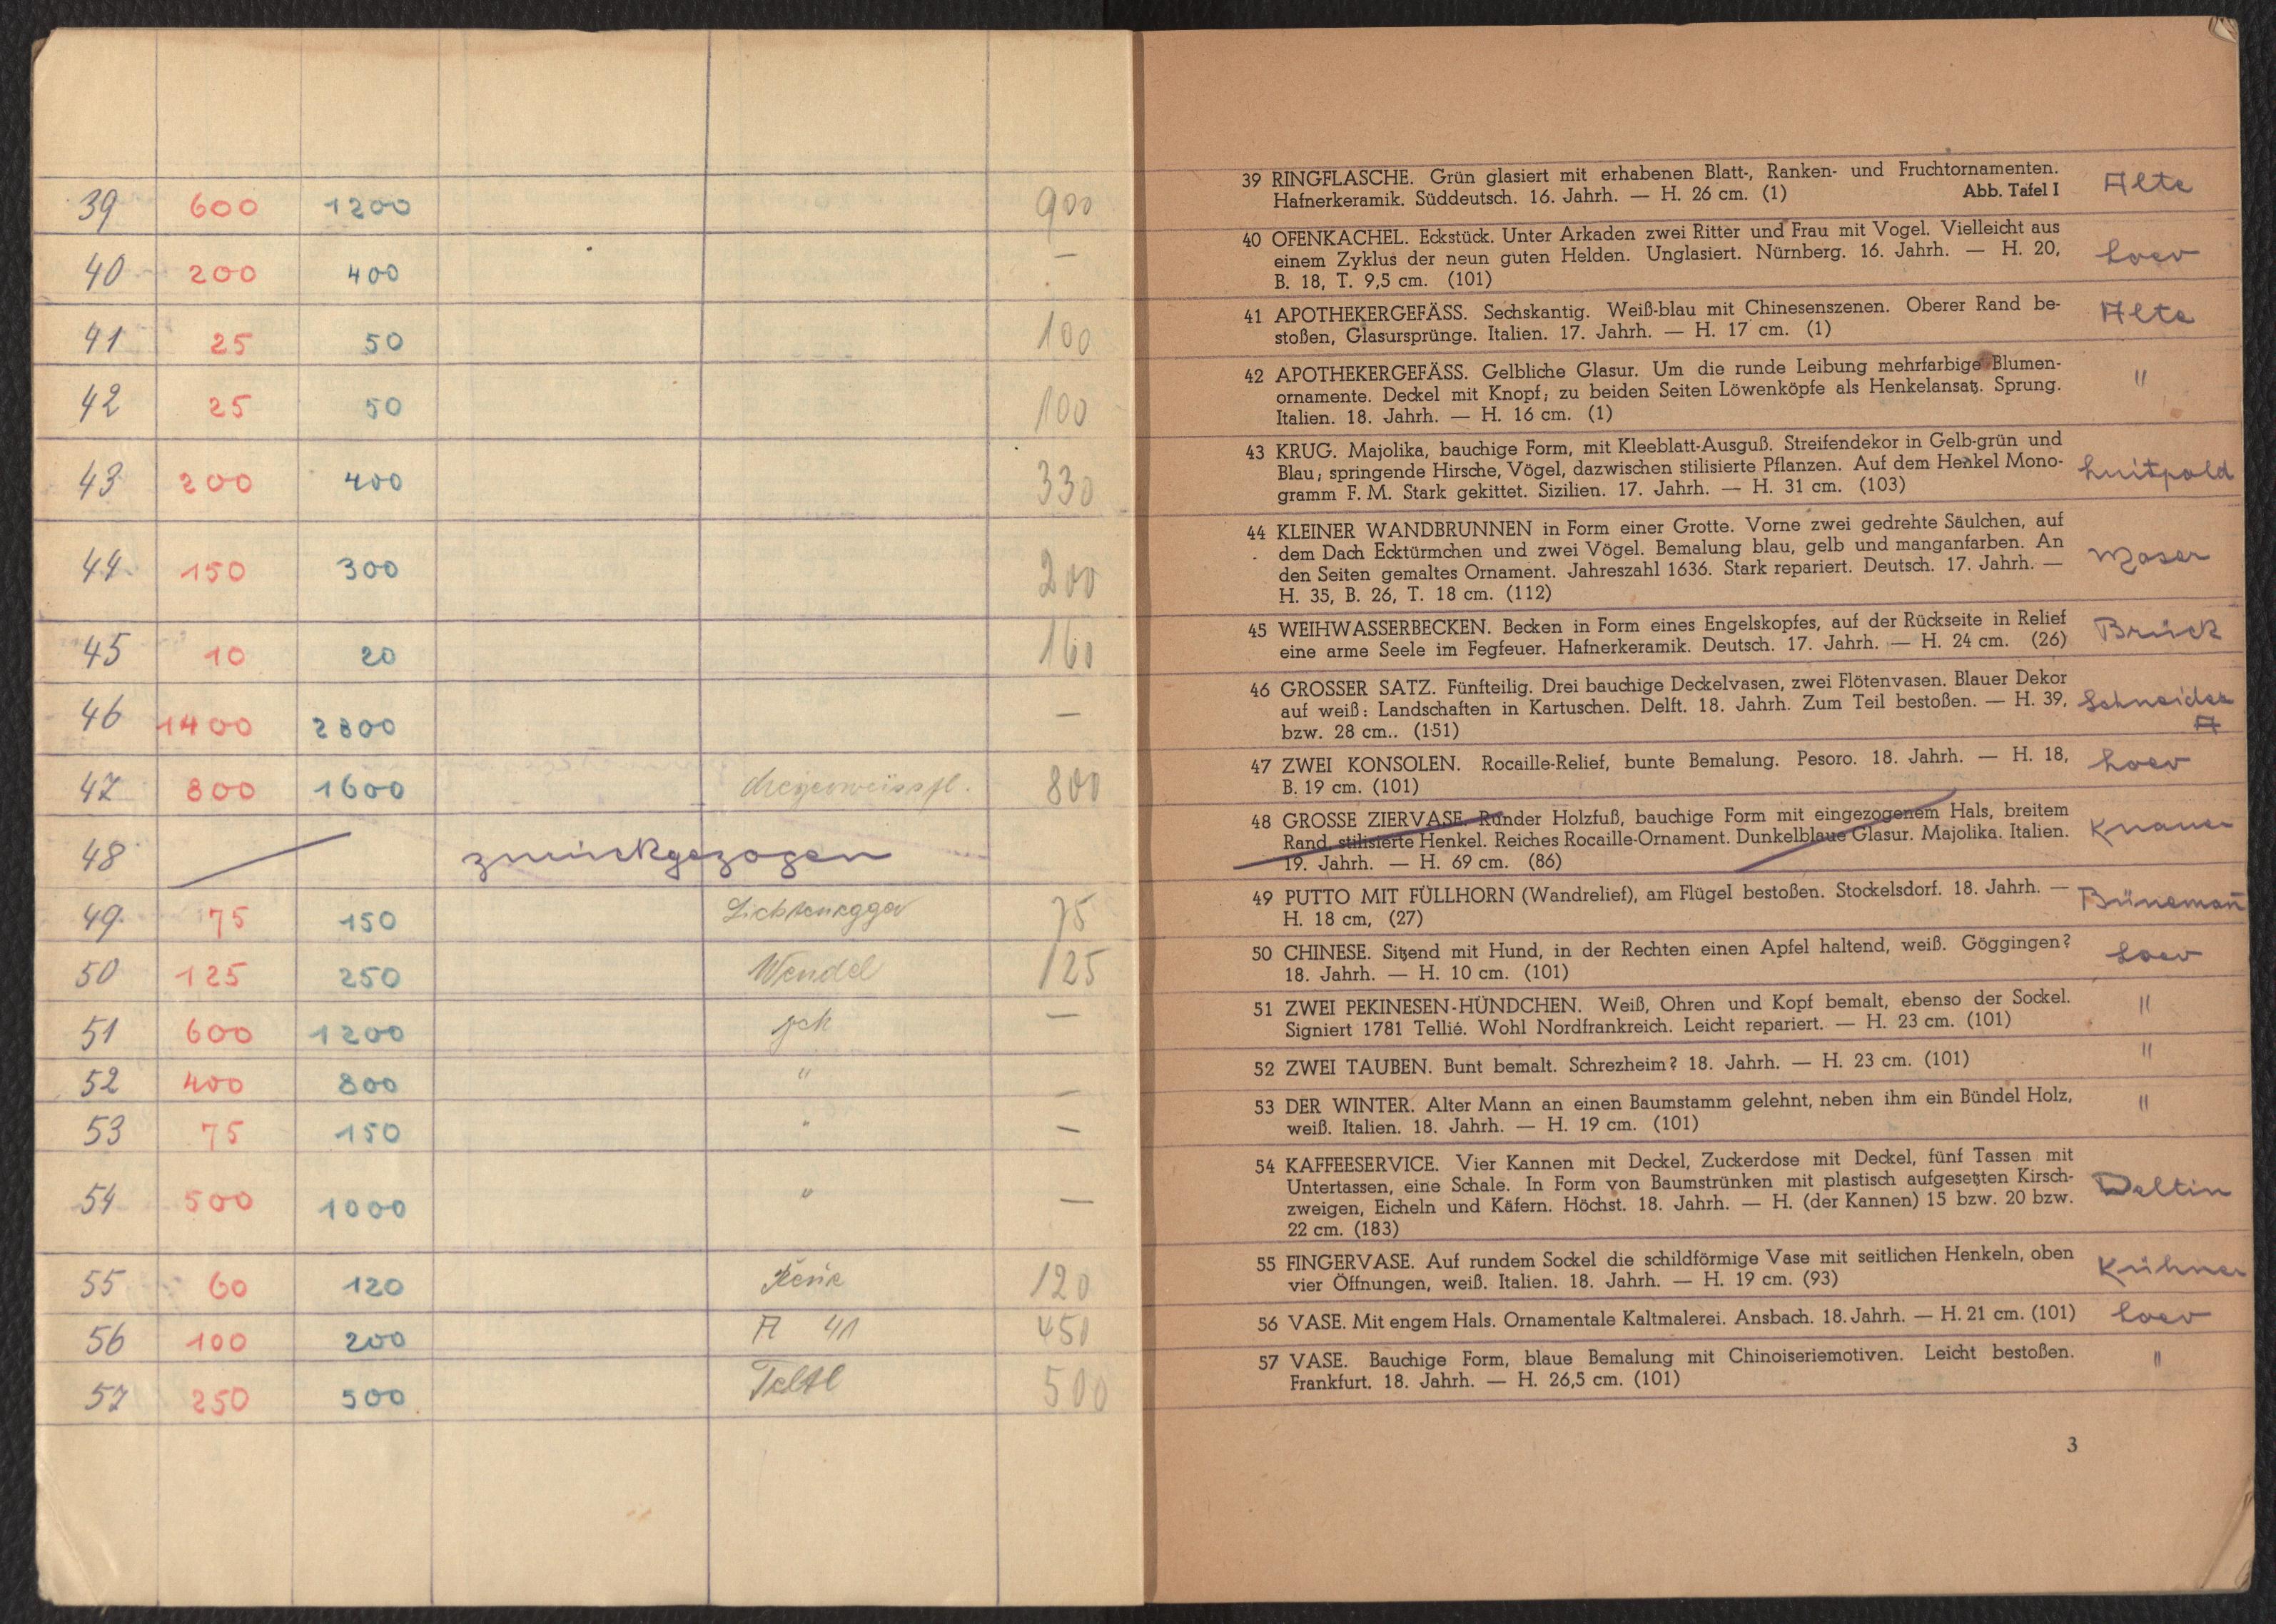 39 600 1200 900
40 200 400 —
41 25 50 100
42 25 50 100
43 200 400 330
44 150 300 200
45 10 20 160
46 1400 2800 —
47 800 1600 800
48 zurückgezogen
49 75 150 Lichtenegger 75
50 125 250 Wendel 125
51 600 1200 —
52 400 800 " —
53 75 150 " —
54 500 1000 " —
55 60 120 120
56 100 200 A 41 450
57 250 500 500
39 RINGFLASCHE. Grün glasiert mit erhabenen Blatt-, Ranken- und Fruchtornamenten. Alte
Hafnerkeramik. Süddeutsch. 16. Jahrh. — H. 26 cm. (1) Abb. Tafel I
40 OFENKACHEL. Eckstück. Unter Arkaden zwei Ritter und Frau mit Vogel. Vielleicht aus
einem Zyklus der neun guten Helden. Unglasiert. Nürnberg. 16. Jahrh. — H. 20, Loev
B. 18, T. 9,5 cm. (101)
41 APOTHEKERGEFÄSS. Sechskantig. Weiß-blau mit Chinesenszenen. Oberer Rand be- Alte
stoßen, Glasursprünge. Italien. 17. Jahrh. — H. 17 cm. (1)
42 APOTHEKERGEFÄSS. Gelbliche Glasur. Um die runde Leibung mehrfarbige Blumen- "
ornamente. Deckel mit Knopf; zu beiden Seiten Löwenköpfe als Henkelansatz. Sprung.
Italien. 18. Jahrh. — H. 16 cm. (1)
43 KRUG. Majolika, bauchige Form, mit Kleeblatt-Ausguß. Streifendekor in Gelb-grün und
Blau; springende Hirsche, Vögel, dazwischen stilisierte Pflanzen. Auf dem Henkel Mono- Luitpold
gramm F. M. Stark gekittet. Sizilien. 17. Jahrh. — H. 31 cm. (103)
44 KLEINER WANDBRUNNEN in Form einer Grotte. Vorne zwei gedrehte Säulchen, auf
dem Dach Ecktürmchen und zwei Vögel. Bemalung blau, gelb und manganfarben. An Moser
den Seiten gemaltes Ornament. Jahreszahl 1636. Stark repariert. Deutsch. 17. Jahrh. —
H. 35, B. 26, T. 18 cm. (112)
45 WEIHWASSERBECKEN. Becken in Form eines Engelskopfes, auf der Rückseite in Relief Brück
eine arme Seele im Fegfeuer. Hafnerkeramik. Deutsch. 17. Jahrh. — H. 24 cm. (26)
46 GROSSER SATZ. Fünfteilig. Drei bauchige Deckelvasen, zwei Flötenvasen. Blauer Dekor
auf weiß: Landschaften in Kartuschen. Delft. 18. Jahrh. Zum Teil bestoßen. — H. 39, Schneider
bzw. 28 cm.. (151) A
47 ZWEI KONSOLEN. Rocaille-Relief, bunte Bemalung. Pesoro. 18. Jahrh. — H. 18, Loev
B. 19 cm. (101)
48 GROSSE ZIERVASE. Runder Holzfuß, bauchige Form mit eingezogenem Hals, breitem
Rand, stilisierte Henkel. Reiches Rocaille-Ornament. Dunkelblaue Glasur. Majolika. Italien. Knauer
19. Jahrh. — H. 69 cm. (86)
49 PUTTO MIT FÜLLHORN (Wandrelief), am Flügel bestoßen. Stockelsdorf. 18. Jahrh. — Bünemañ
H. 18 cm, (27)
50 CHINESE. Sitzend mit Hund, in der Rechten einen Apfel haltend, weiß. Göggingen? Loev
18. Jahrh. — H. 10 cm. (101)
51 ZWEI PEKINESEN-HÜNDCHEN. Weiß, Ohren und Kopf bemalt, ebenso der Sockel. "
Signiert 1781 Tellié. Wohl Nordfrankreich. Leicht repariert. — H. 23 cm. (101)
52 ZWEI TAUBEN. Bunt bemalt. Schrezheim? 18. Jahrh. — H. 23 cm. (101) "
53 DER WINTER. Alter Mann an einen Baumstamm gelehnt, neben ihm ein Bündel Holz, "
weiß. Italien. 18. Jahrh. — H. 19 cm. (101)
54 KAFFEESERVICE. Vier Kannen mit Deckel, Zuckerdose mit Deckel, fünf Tassen mit
Untertassen, eine Schale. In Form von Baumstrünken mit plastisch aufgesetzten Kirsch-
zweigen, Eicheln und Käfern. Höchst. 18. Jahrh. — H. (der Kannen) 15 bzw. 20 bzw.
22 cm. (183)
55 FINGERVASE. Auf rundem Sockel die schildförmige Vase mit seitlichen Henkeln, oben Krühner
vier Öffnungen, weiß. Italien. 18. Jahrh. — H. 19 cm. (93)
56 VASE. Mit engem Hals. Ornamentale Kaltmalerei. Ansbach. 18. Jahrh. — H. 21 cm. (101) Loev
57 VASE. Bauchige Form, blaue Bemalung mit Chinoiseriemotiven. Leicht bestoßen. "
Frankfurt. 18. Jahrh. — H. 26,5 cm. (101)
3